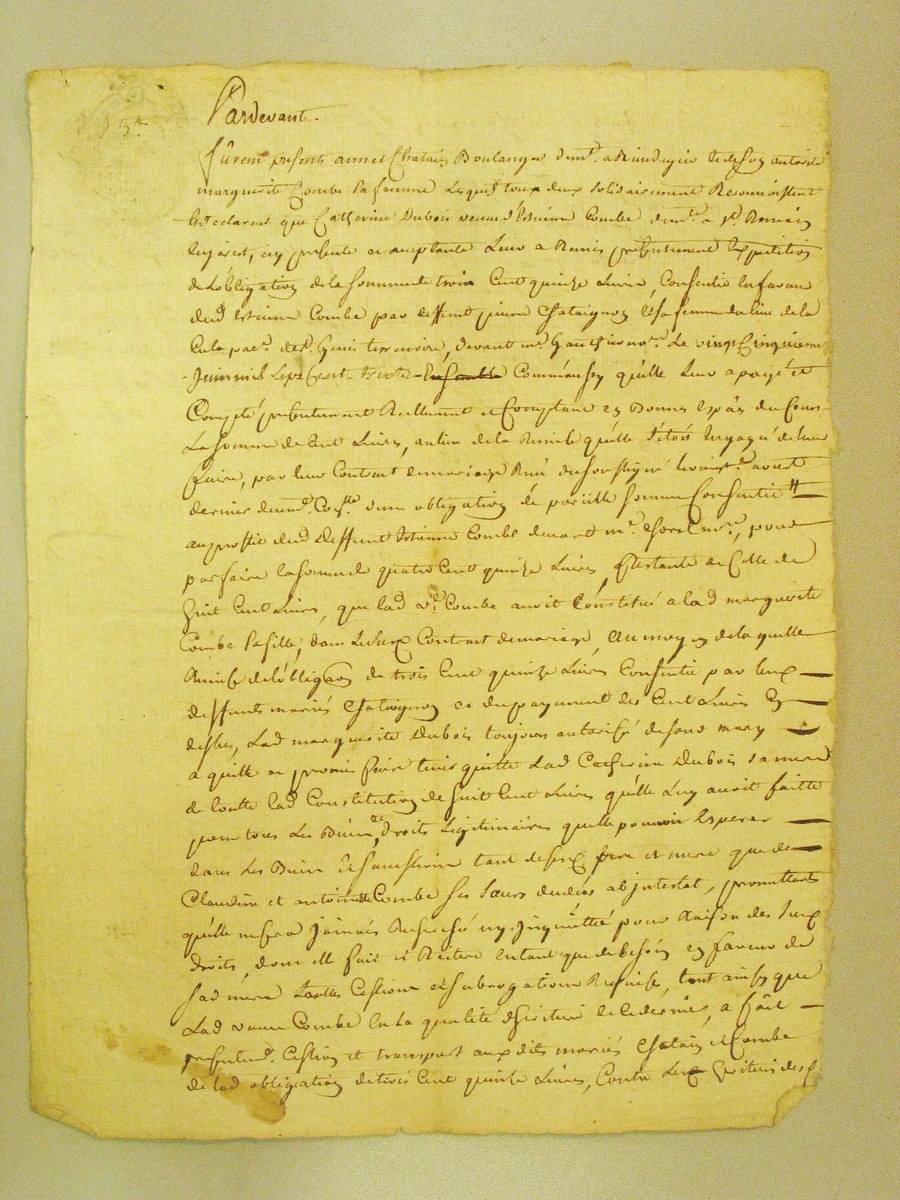 3
Pardevant.
furent presents annet Chatain Boulanger a et de son autorité
marguerite Combe sa femme Lesquels tous deux solidairement Reconnoissent
et declarent que Catherine Dubois veuve d'Estienne Combe a St Romain
cy presente et acceptante Leur a Remis presentement Expedition
de L'obligation de la somme de trois Cent quinze Livres, Consentie en faveur
dud Estienne Combe par deffunt pierre Chataignon et sa femme de la
de St Genis terrenoire, devant mr nore. Le vingt Cinquieme
Juin mil sept Cent trente Comm'aussy qu'elle Leur a payé et
Compté presentement Reellement et Comptant en Bonnes Espéces du Cours
La somme de Cent Livres, au lieu de la Remise qu'elle s'etois Engagé de leur
faire, par leur Contrat de mariage Reçu du soussigné
dernier d'une obligation de pareille somme Consentie
au proffit dud Deffunt Estienne Combe devant mr nore, pour
parfaire la somme de quatre Cent quinze Livres, Restante de Celle de
huit Cent Livres, que lad ve Combe avoit Constitué a lad marguerite
Combe sa fille, dans Leurd Contrat de mariage, au moyen de laquelle
Remise de L'obligaon de trois Cent quinze Livres Consentie par lesd
deffunts mariés Chataignon et du payement des Cent Livres En
Espéces, Lad marguerite Dubois toujours autorisé de sond mary
a quitté et promis faire tenir quitte Lad Catherine Dubois sa mere
de toutte lad Constitution de huit Cent Livres qu'elle Luy avoit faitte
pour tous Les Biens et droits Legitimaires qu'elle pouvoir Esperer
dans Les Biens et successions tant de sesd pere et mere que de
Claudine et antoinette Combe ses sœurs decedées ab intestat, promettants
qu'elle ne sera Jamais Recherché ny Inquiettée pour Raison des susd
droits, dont elle fait et Reitere en tant que de besoin en faveur de
sad mere touttes Cessions et subrogations Requises, tout ainsy que
Lad veuve Combe En La qualité d'heritiere a fait
presentemt. Cession et transport aux dits mariés Chatain et Combe
de lad obligation de trois Cent quinze Livres, Contre Lesd heritiers des